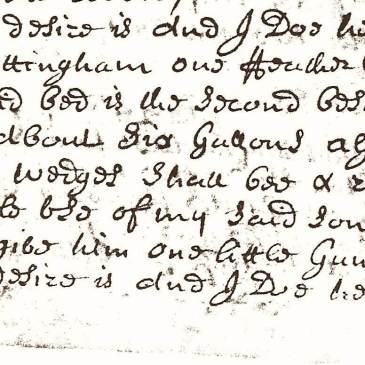 desire is and I Doe he
ttingham one ffeather
bed is the Second bes
about Six Gallons a
wedges Shall bee & r
use of my Said Son
give him one little Gun
desire is and I Doe he